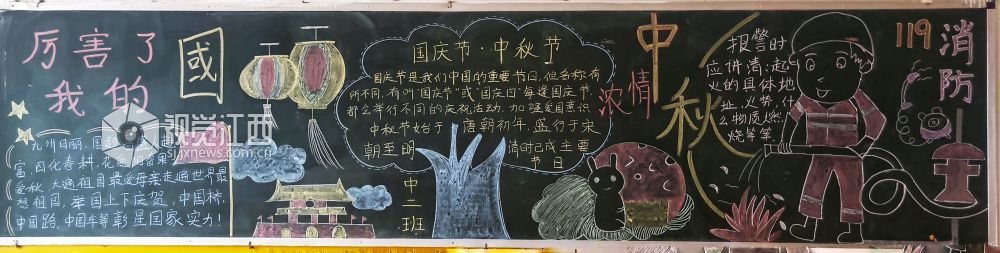 厉害了
我的
國
九州日丽,国
富,因化春耕,花
爱秋,大通祖国最爱母亲走遍世界最
想祖国,举国上下庆贺,中国桥,
中国路,中国车等彰呈国家实力!
视觉江西
www.sjjxnews.cn
国庆节·中秋节
国庆节是我们中国的重要节日,但名称有
所不同,有叫"国庆节"或"国庆日"每逢国庆节,
都会举行不同的庆祝活动,加强爱国意识.
中秋节始于唐朝初年,盛行于宋
朝至明
清时已成主要
节日
中二班
浓情
中秋
报警时
应讲清:起
火的具体地
址、火势、什
么物质燃
烧等等
119
消防